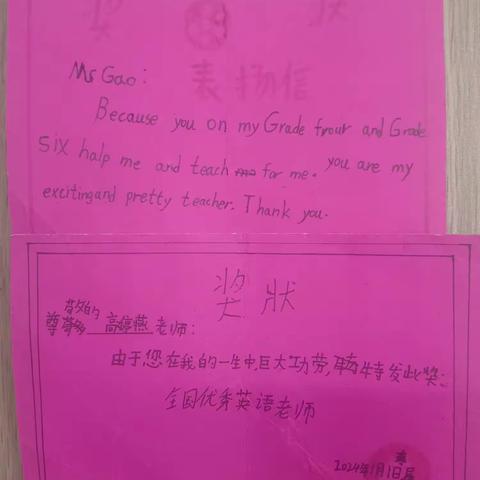 奖 状
表扬信
Ms Gao:
Because you on my Grade frour and Grade
six halp me and teach for me. you are my
excitingand pretty teacher. Thank you.
奖 状
尊敬的 高婷燕 老师:
由于您在我的一生中巨大功劳,特发此奖:
全国优秀英语老师
2024年1月1日